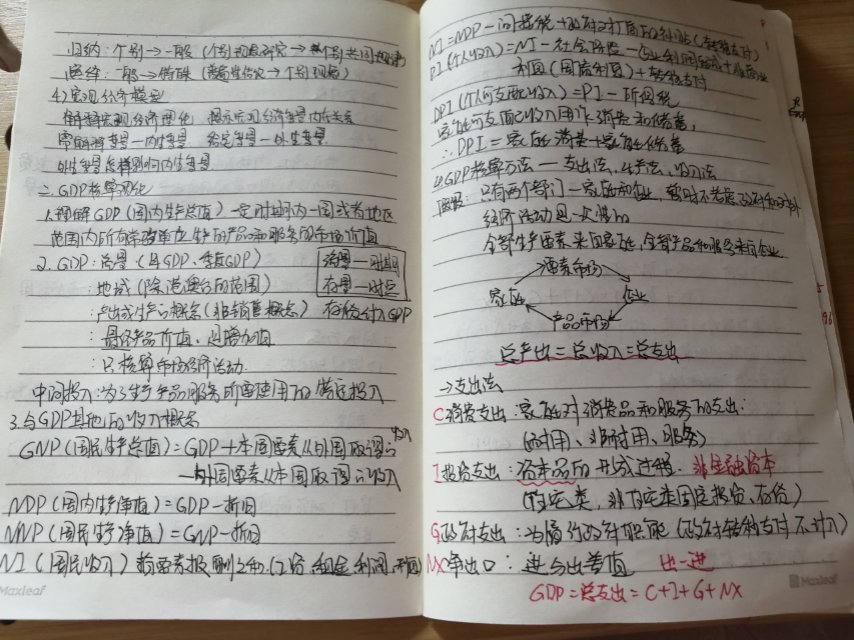 归纳：个别→一般（个别现象研究→个别共同规律）
演绎：一般→特殊（普遍性结论→个别现象）
4）宏观经济模型
解释宏观经济变化 揭示宏观经济变量内在关系
需解释变量—内生变量 给定变量—外生变量
外生变量怎样影响内生变量
二.GDP核算
1.理解GDP（国内生产总值）一定时期内一国或者地区
范围内所有常驻单位生产的产品和服务的市场价值
2.GDP：流量（月GDP、季度GDP）
流量—时期
存量—时点
：地域（除港澳台的范围）
：产出或生产的概念（非销售概念）存货计入GDP
：最终产品价值、也是增加值
：只核算市场经济活动
中间投入：为了生产产品服务所需使用的特定投入
3.与GDP其他的收入概念
GNP（国民生产总值）=GDP+本国要素从外国取得的收入
—外国要素从本国取得的收入
NDP（国内生产净值）=GDP-折旧
NNP（国民生产净值）=GNP-折旧
NI（国民收入）指要素报酬之和（工资、租金、利润、利息）
Maxleaf
NI=NDP-间接税+政府对厂商的补贴（转移支付）
PI（个人收入）=NI-社会保险-企业利润
利润（国库利息）+转移支付
DPI（个人可支配收入）=PI-所得税
家庭可支配收入用作消费和储蓄，
∴DPI=家庭消费+家庭储蓄
4.GDP核算方法—支出法、生产法、收入法
假设：只有两个部门—家庭和企业，暂时不考虑政府和对外
经济活动是一次性的
全部生产要素来自家庭，全部产品和服务来自企业
要素市场
家庭 企业
产品市场
总产出=总收入=总支出
→支出法
C消费支出：家庭对消费品和服务的支出：
（耐用、非耐用、服务）
I投资支出：资本品的形成过程 非金融资本
（住宅类、非住宅类固定投资、存货）
G政府支出：为履行政府职能（政府转移支付不计入）
NX净出口：进与出差值 出-进
GDP=总支出=C+I+G+NX
Maxleaf